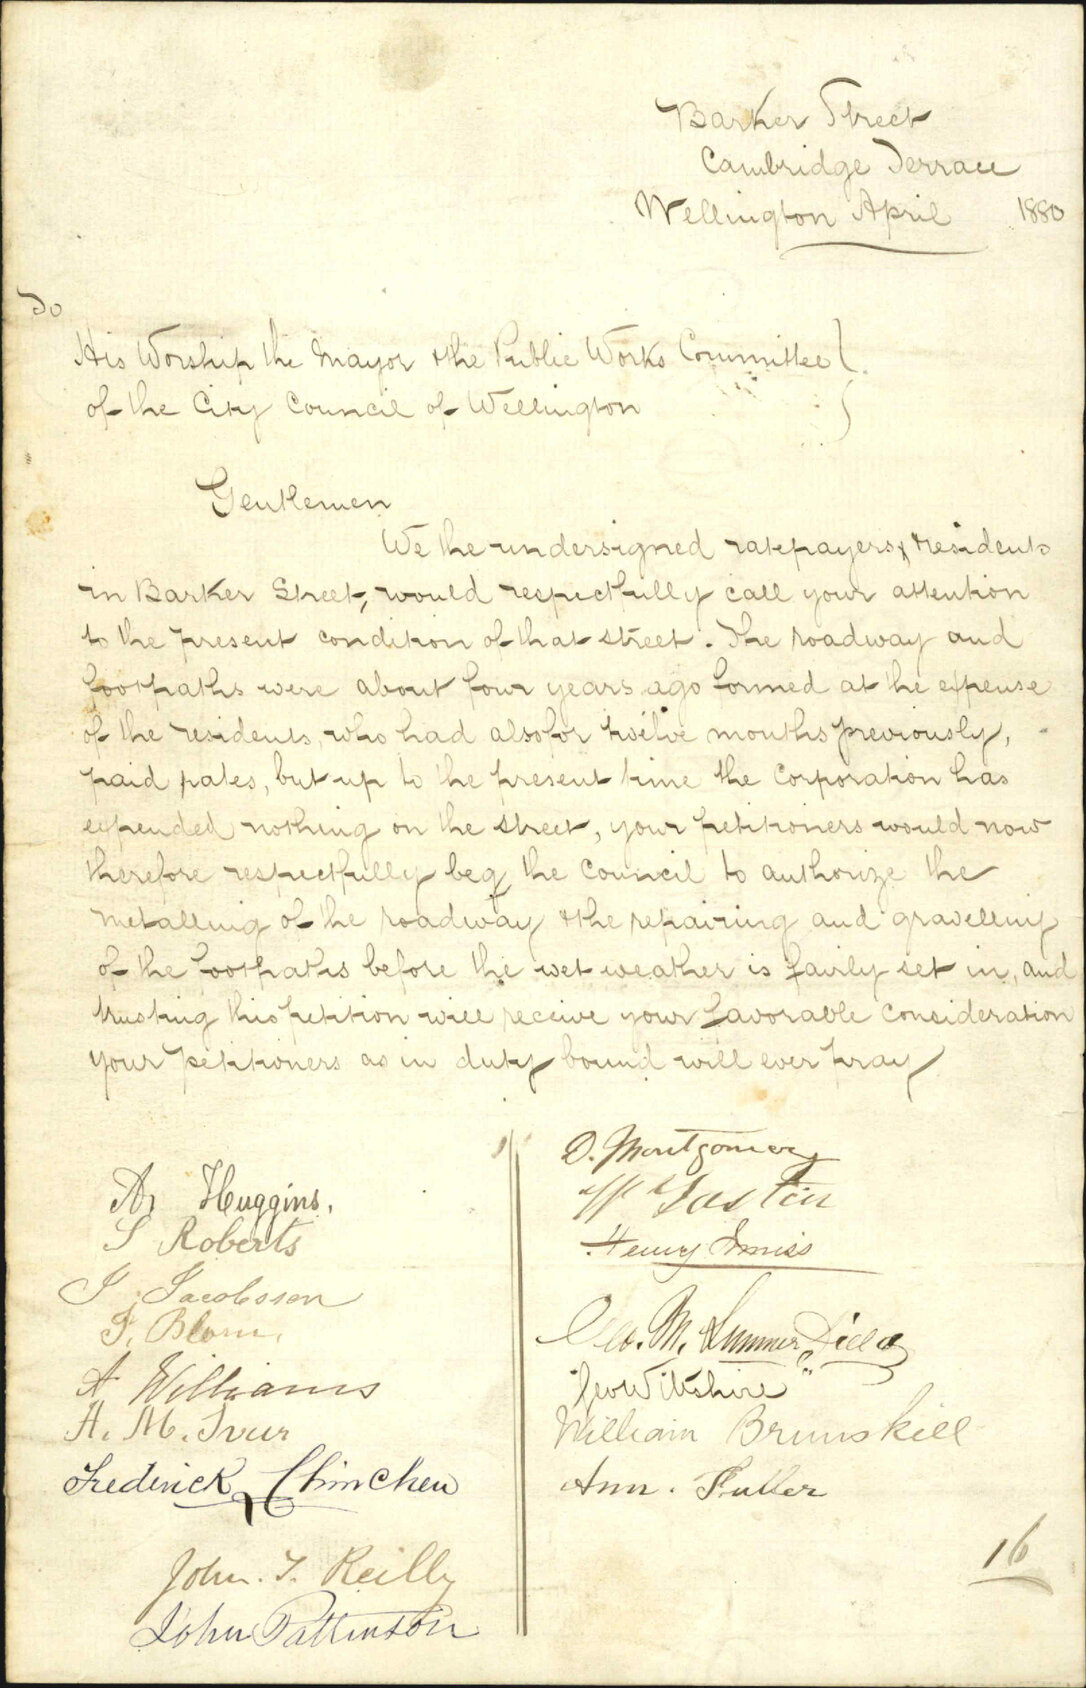 Barker Street
Cambridge Terrace
Wellington April 1880
To
His Worship the Mayor & the Public Works Committee
of the City Council of Wellington
Gentlemen
We the undersigned ratepayers & residents
in Barker Street, would respectfully call your attention
to the present condition of that street. The roadway and
footpaths were about four years ago formed at the expense
of the residents, who had also for twelve months previously,
paid rates, but up to the present time the Corporation has
expended nothing on the street, your petitioners would now
therefore respectfully beg the Council to authorize the
metalling of the roadway & the repairing and gravelling
of the footpaths before the wet weather is fairly set in, and
trusting this petition will receive your favorable consideration
your petitioners as in duty bound will ever pray
A, Huggins.
S Roberts
J. Jacobsson
F. Blom.
A Williams
H. M. Iveer
Frederick Chinchen
John. T. Reilly
John Pattinson
D. Montgomery
Henry Inniss
Geo. M. Sumner
Geo Wiltshire
William Brunskill
Ann. Fuller
16